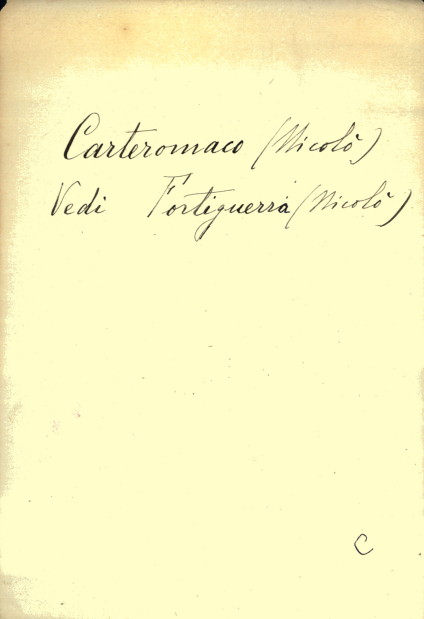 Carteromaco (Nicolò)
Vedi Fortiguerra (Nicolò)
C